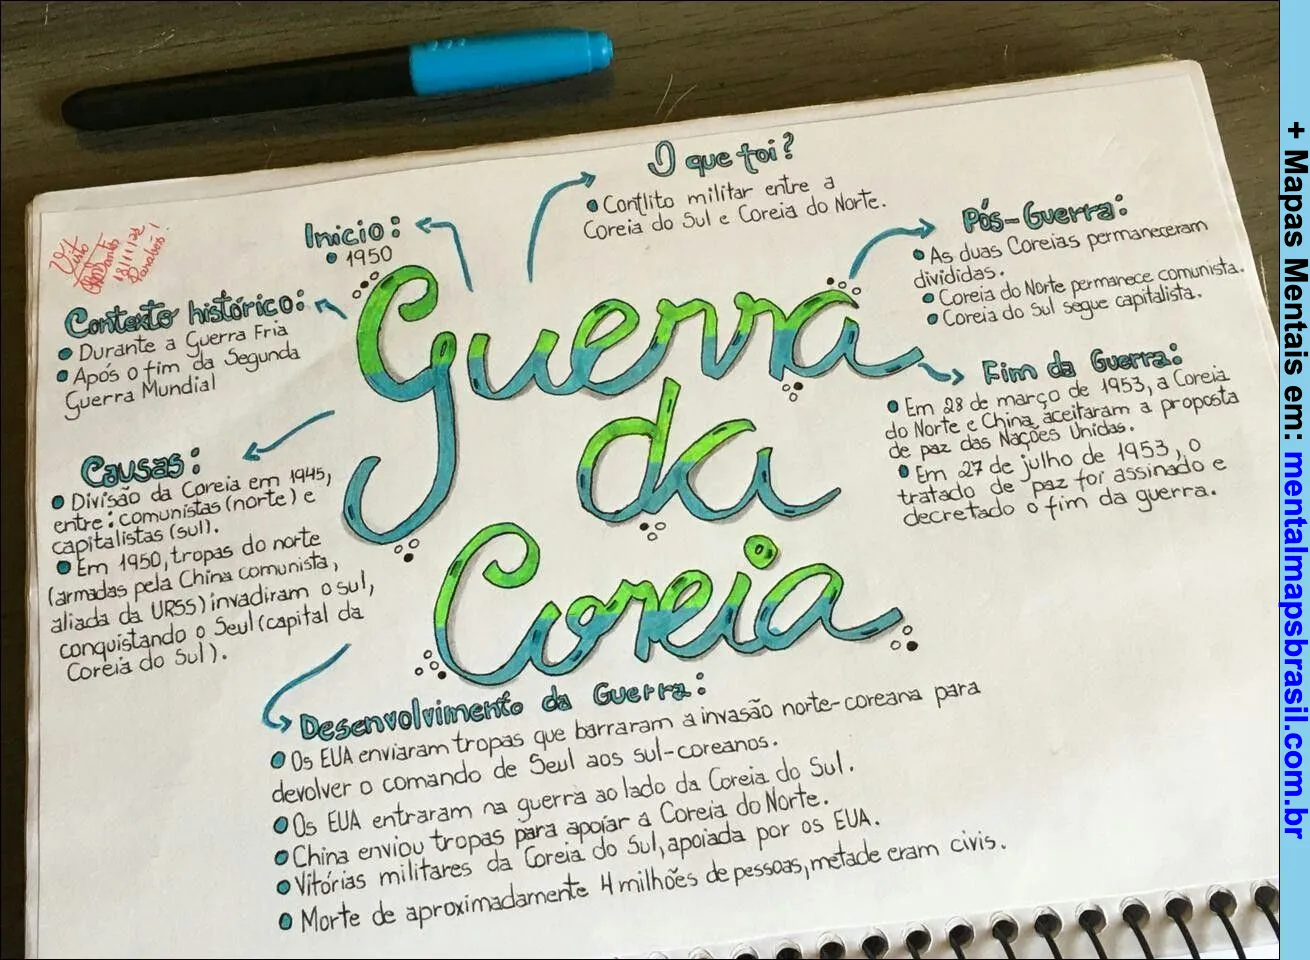 O que foi?
• Conflito militar entre a
Coreia do Sul e Coreia do Norte.
Início:
• 1950
Visto
18/11/22
Parabéns!
Contexto histórico:
• Durante a Guerra Fria
• Após o fim da Segunda
Guerra Mundial
Causas:
• Divisão da Coreia em 1945,
entre: comunistas (norte) e
capitalistas (sul).
• Em 1950, tropas do norte
(armadas pela China comunista,
aliada da URSS) invadiram o sul,
conquistando o Seul (capital da
Coreia do Sul).
Guerra
da
Coreia
Pós-Guerra:
• As duas Coreias permaneceram
divididas.
• Coreia do Norte permanece comunista.
• Coreia do Sul segue capitalista.
Fim da Guerra:
• Em 28 de março de 1953, a Coreia
do Norte e China aceitaram a proposta
de paz das Nações Unidas.
• Em 27 de julho de 1953, o
tratado de paz foi assinado e
decretado o fim da guerra.
Desenvolvimento da Guerra:
• Os EUA enviaram tropas que barraram a invasão norte-coreana para
devolver o comando de Seul aos sul-coreanos.
• Os EUA entraram na guerra ao lado da Coreia do Sul.
• China enviou tropas para apoiar a Coreia do Norte.
• Vitórias militares da Coreia do Sul, apoiada por os EUA.
• Morte de aproximadamente 4 milhões de pessoas, metade eram civis.
+ Mapas Mentais em: mentalmapsbrasil.com.br